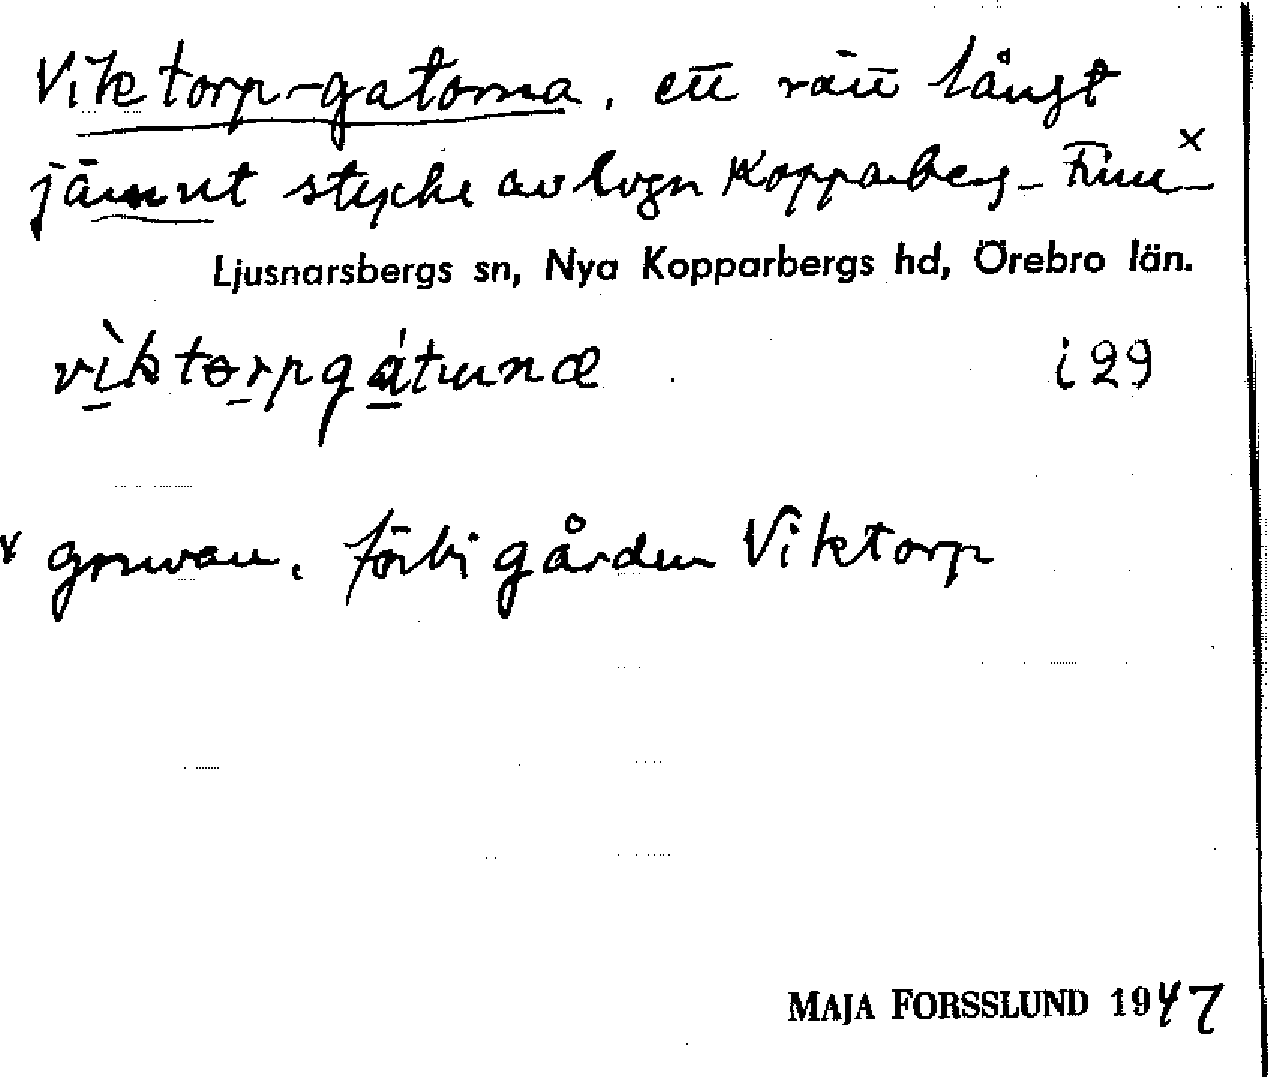 Viktorp-gatorna, ett rätt långt
jämnt stycke av lvgn Kopparberg - Finn- x
Ljusnarsbergs sn, Nya Kopparbergs hd, Örebro län.
vìktorpgátunæ i 29
x gruvan. förbi gården Viktorp
MAJA FORSSLUND 1947